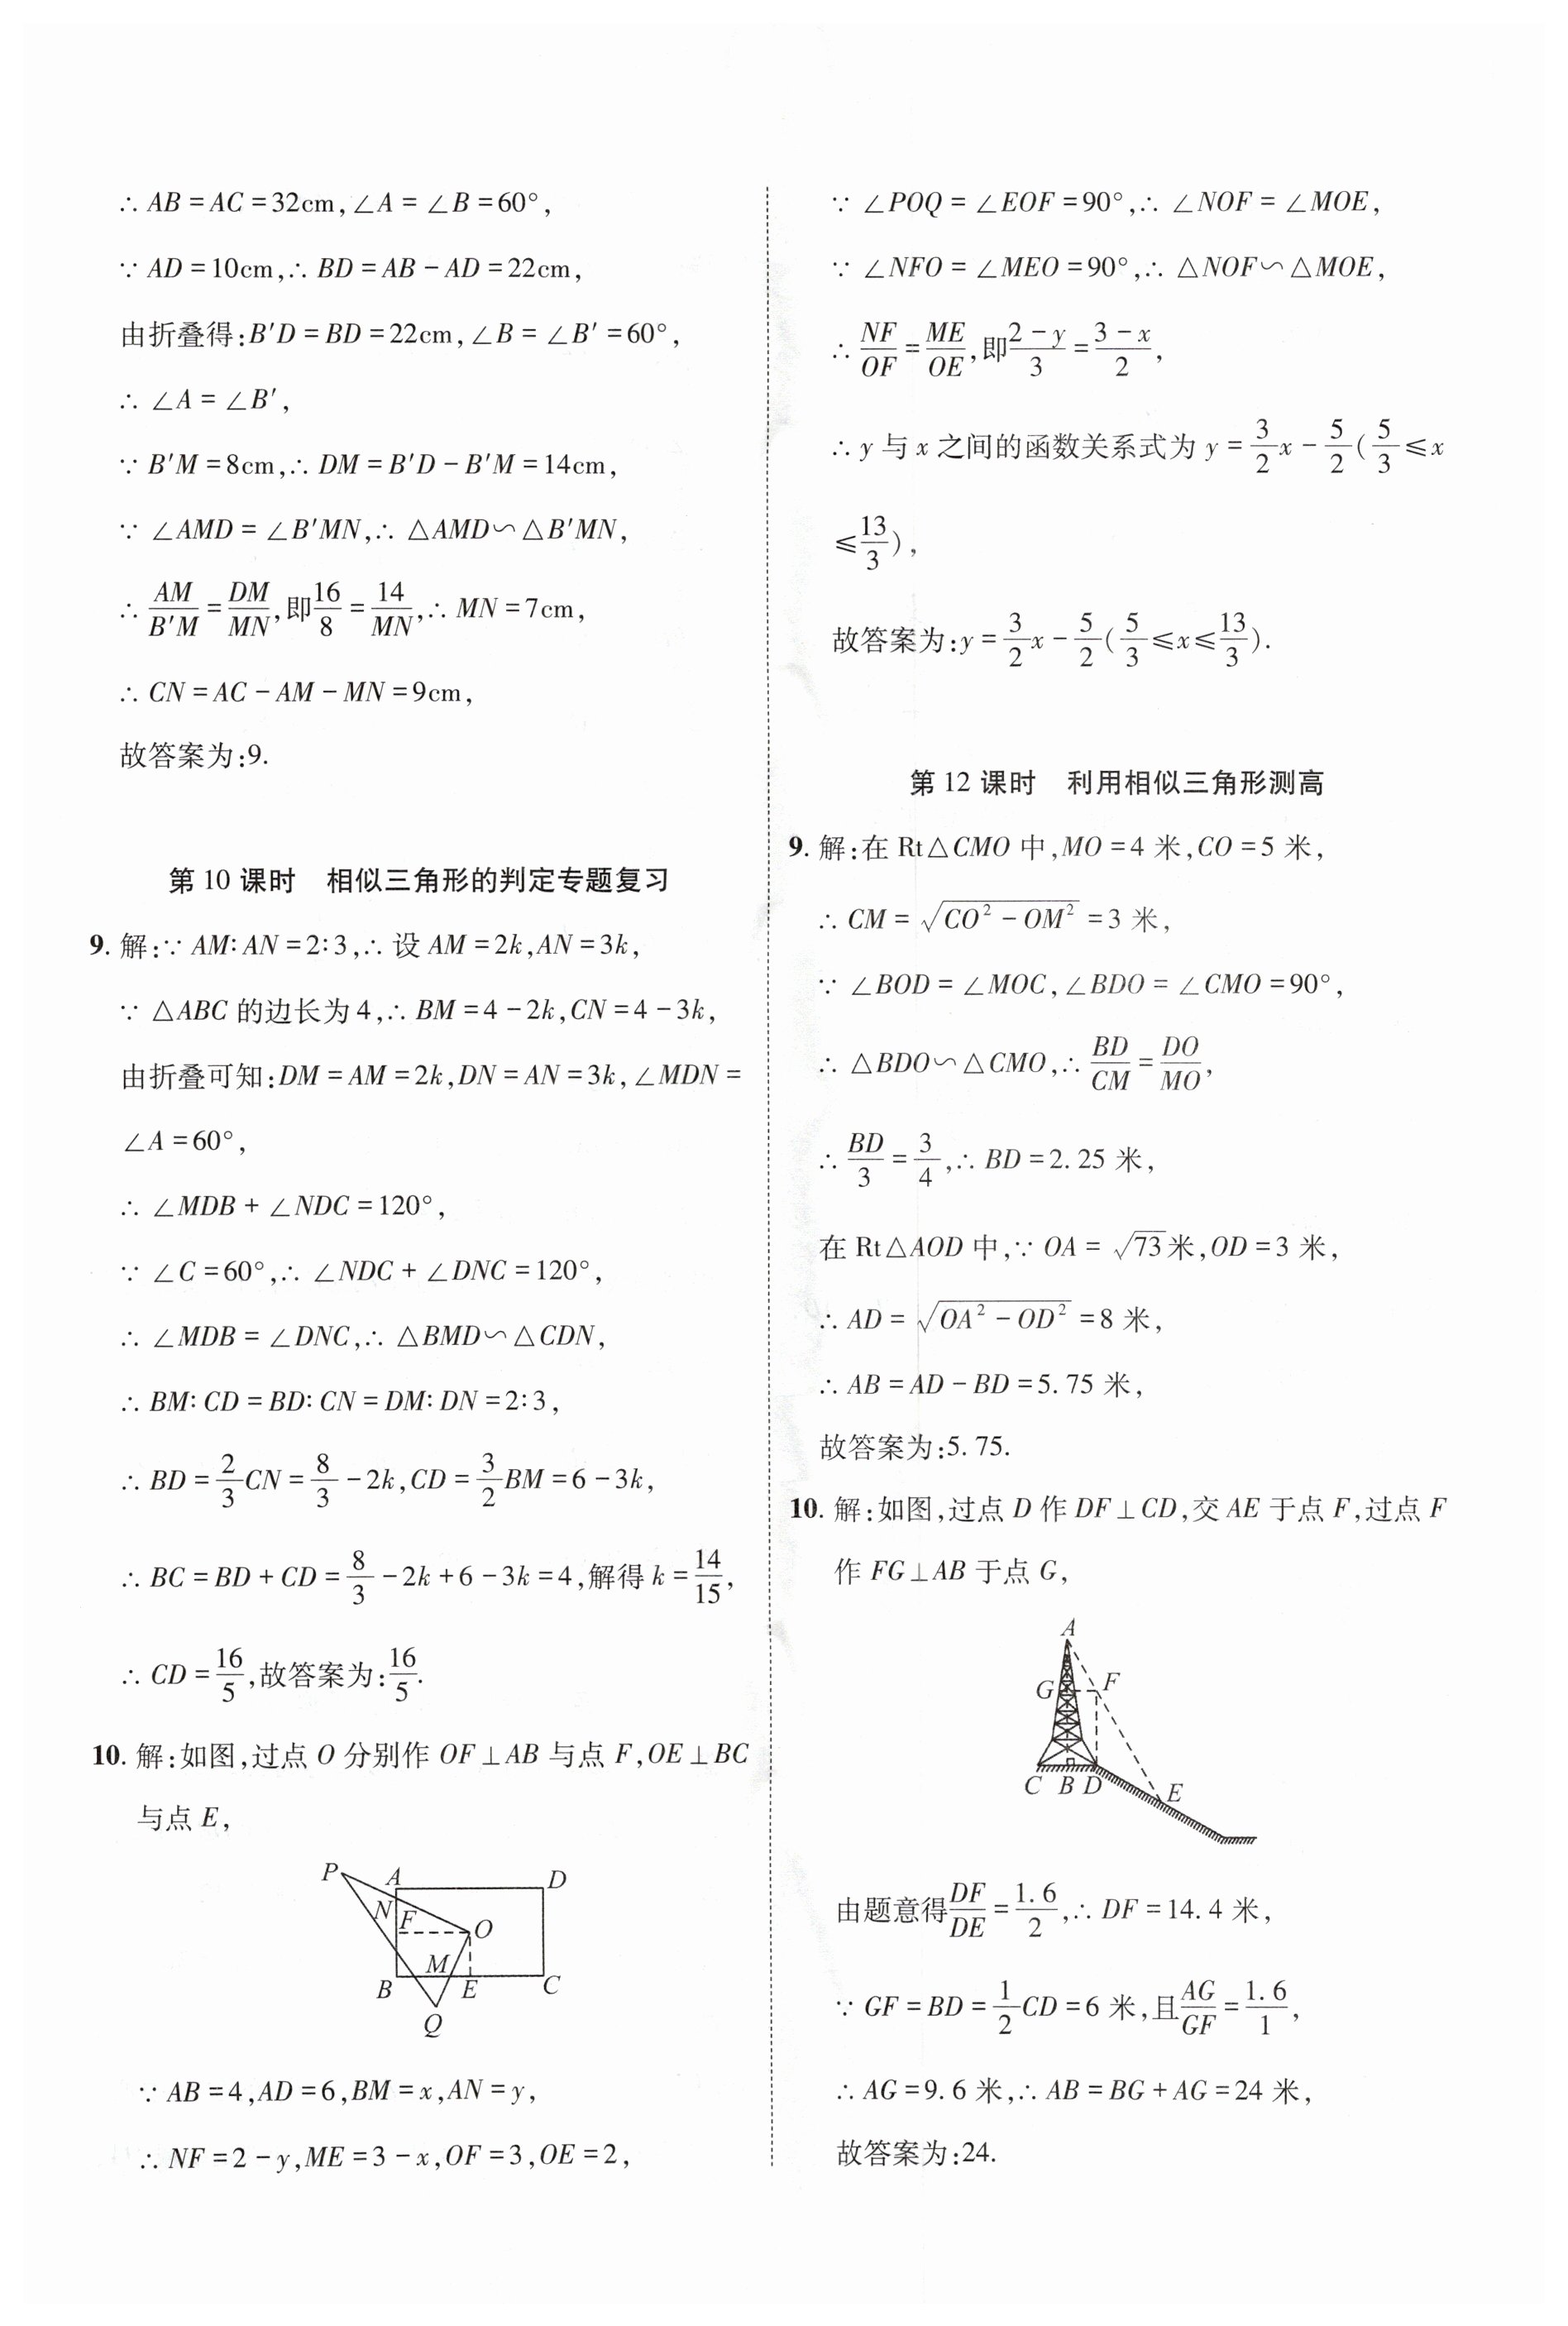 ∴ AB = AC = 32cm, ∠A = ∠B = 60°,
∵ AD = 10cm, ∴ BD = AB - AD = 22cm,
由折叠得:B′D = BD = 22cm, ∠B = ∠B′ = 60°,
∴ ∠A = ∠B′,
∵ B′M = 8cm, ∴ DM = B′D - B′M = 14cm,
∵ ∠AMD = ∠B′MN, ∴ △AMD∽△B′MN,
∴ AM/B′M = DM/MN, 即16/8 = 14/MN, ∴ MN = 7cm,
∴ CN = AC - AM - MN = 9cm,
故答案为:9.
第 10 课时　相似三角形的判定专题复习
9. 解:∵ AM∶AN = 2∶3, ∴ 设 AM = 2k, AN = 3k,
∵ △ABC 的边长为 4, ∴ BM = 4 - 2k, CN = 4 - 3k,
由折叠可知:DM = AM = 2k, DN = AN = 3k, ∠MDN =
∠A = 60°,
∴ ∠MDB + ∠NDC = 120°,
∵ ∠C = 60°, ∴ ∠NDC + ∠DNC = 120°,
∴ ∠MDB = ∠DNC, ∴ △BMD∽△CDN,
∴ BM∶CD = BD∶CN = DM∶DN = 2∶3,
∴ BD = 2/3 CN = 8/3 - 2k, CD = 3/2 BM = 6 - 3k,
∴ BC = BD + CD = 8/3 - 2k + 6 - 3k = 4, 解得 k = 14/15,
∴ CD = 16/5, 故答案为:16/5.
10. 解:如图,过点 O 分别作 OF⊥AB 与点 F, OE⊥BC
与点 E,
P A D
N F O
M
B E C
Q
∵ AB = 4, AD = 6, BM = x, AN = y,
∴ NF = 2 - y, ME = 3 - x, OF = 3, OE = 2,
∵ ∠POQ = ∠EOF = 90°, ∴ ∠NOF = ∠MOE,
∵ ∠NFO = ∠MEO = 90°, ∴ △NOF∽△MOE,
∴ NF/OF = ME/OE, 即(2 - y)/3 = (3 - x)/2,
∴ y 与 x 之间的函数关系式为 y = 3/2 x - 5/2 (5/3 ≤ x
≤ 13/3),
故答案为:y = 3/2 x - 5/2 (5/3 ≤ x ≤ 13/3).
第 12 课时　利用相似三角形测高
9. 解:在 Rt△CMO 中, MO = 4 米, CO = 5 米,
∴ CM = √(CO² - OM²) = 3 米,
∵ ∠BOD = ∠MOC, ∠BDO = ∠CMO = 90°,
∴ △BDO∽△CMO, ∴ BD/CM = DO/MO,
∴ BD/3 = 3/4, ∴ BD = 2.25 米,
在 Rt△AOD 中, ∵ OA = √73米, OD = 3 米,
∴ AD = √(OA² - OD²) = 8 米,
∴ AB = AD - BD = 5.75 米,
故答案为:5.75.
10. 解:如图,过点 D 作 DF⊥CD,交 AE 于点 F,过点 F
作 FG⊥AB 于点 G,
A
G F
C B D E
由题意得DF/DE = 1.6/2, ∴ DF = 14.4 米,
∵ GF = BD = 1/2 CD = 6 米, 且AG/GF = 1.6/1,
∴ AG = 9.6 米, ∴ AB = BG + AG = 24 米,
故答案为:24.